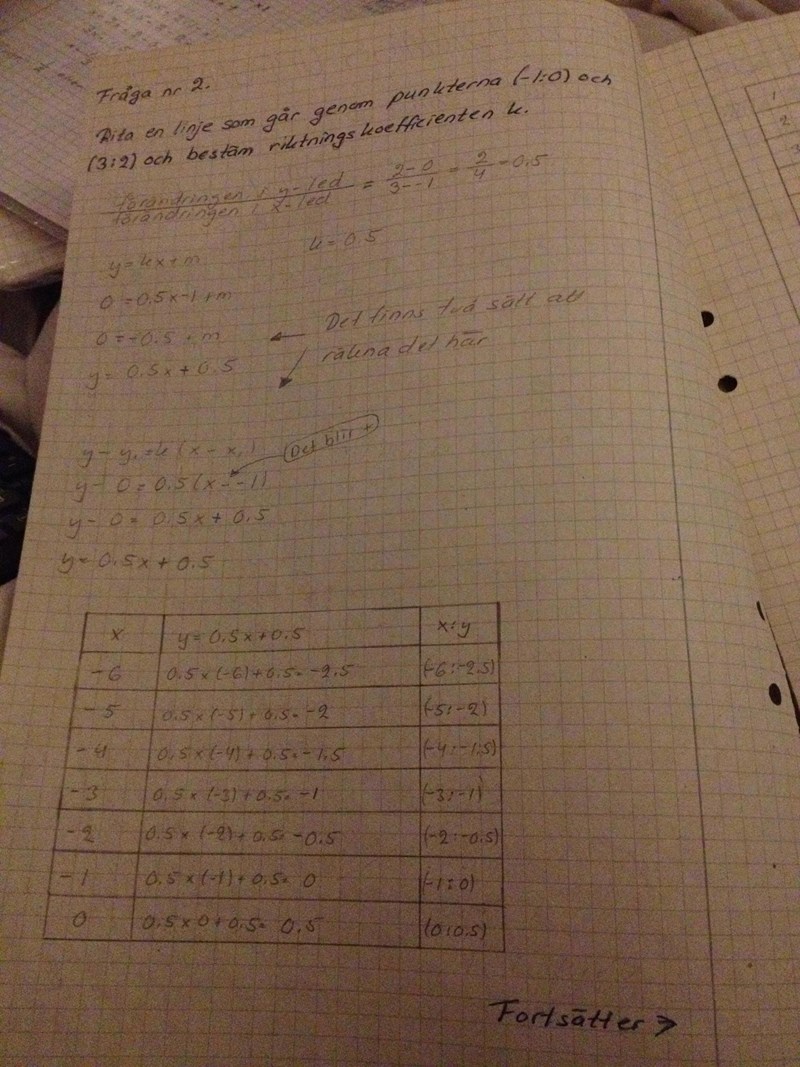 Fråga nr 2.
Rita en linje som går genom punkterna (-1:0) och
(3:2) och bestäm riktningskoefficienten k.
förändringen i y-led / förändringen i x-led = 2-0 / 3--1 = 2/4 = 0.5
y=kx+m k=0.5
0=0.5x-1+m
0=-0.5+m
y=0.5x+0.5
Det finns två sätt att
räkna det här
y-y₁=k(x-x₁)
Det blir +
y-0=0.5(x--1)
y-0=0.5x+0.5
y=0.5x+0.5
x y=0.5x+0.5 x:y
-6 0.5x(-6)+0.5=-2.5 (-6:-2.5)
-5 0.5x(-5)+0.5=-2 (-5:-2)
-4 0.5x(-4)+0.5=-1.5 (-4:-1.5)
-3 0.5x(-3)+0.5=-1 (-3:-1)
-2 0.5x(-2)+0.5=-0.5 (-2:-0.5)
-1 0.5x(-1)+0.5=0 (-1:0)
0 0.5x0+0.5=0.5 (0:0.5)
Fortsätter >
1
2
3